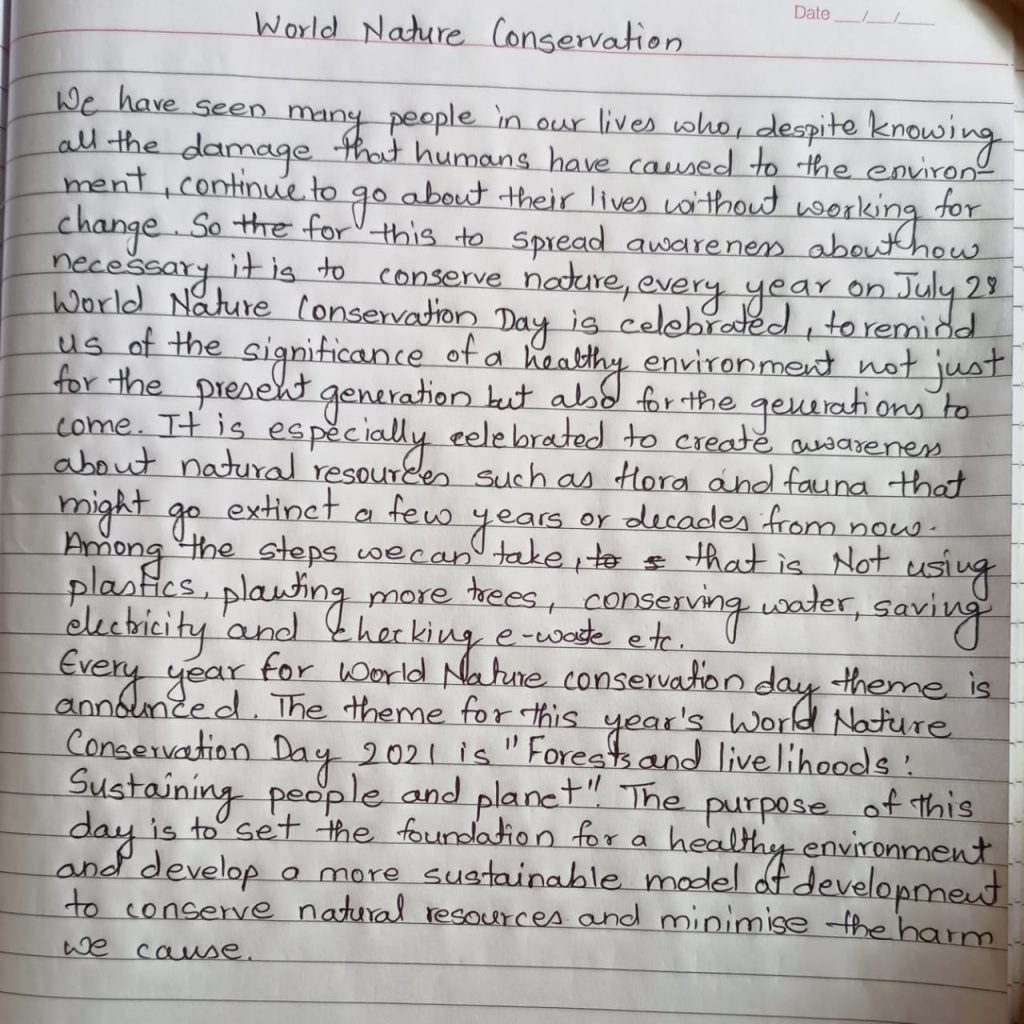 Date __/__/__
World Nature Conservation
We have seen many people in our lives who, despite knowing
all the damage that humans have caused to the environ-
ment, continue to go about their lives without working for
change. So the for this to spread awareness about how
necessary it is to conserve nature, every year on July 28
World Nature Conservation Day is celebrated, to remind
us of the significance of a healthy environment not just
for the present generation but also for the generations to
come. It is especially celebrated to create awareness
about natural resources such as flora and fauna that
might go extinct a few years or decades from now.
Among the steps we can take, to s that is Not using
plastics, planting more trees, conserving water, saving
electricity and checking e-waste etc.
Every year for World Nature conservation day theme is
announced. The theme for this year's World Nature
Conservation Day 2021 is "Forests and livelihoods:
Sustaining people and planet". The purpose of this
day is to set the foundation for a healthy environment
and develop a more sustainable model of development
to conserve natural resources and minimise the harm
we cause.